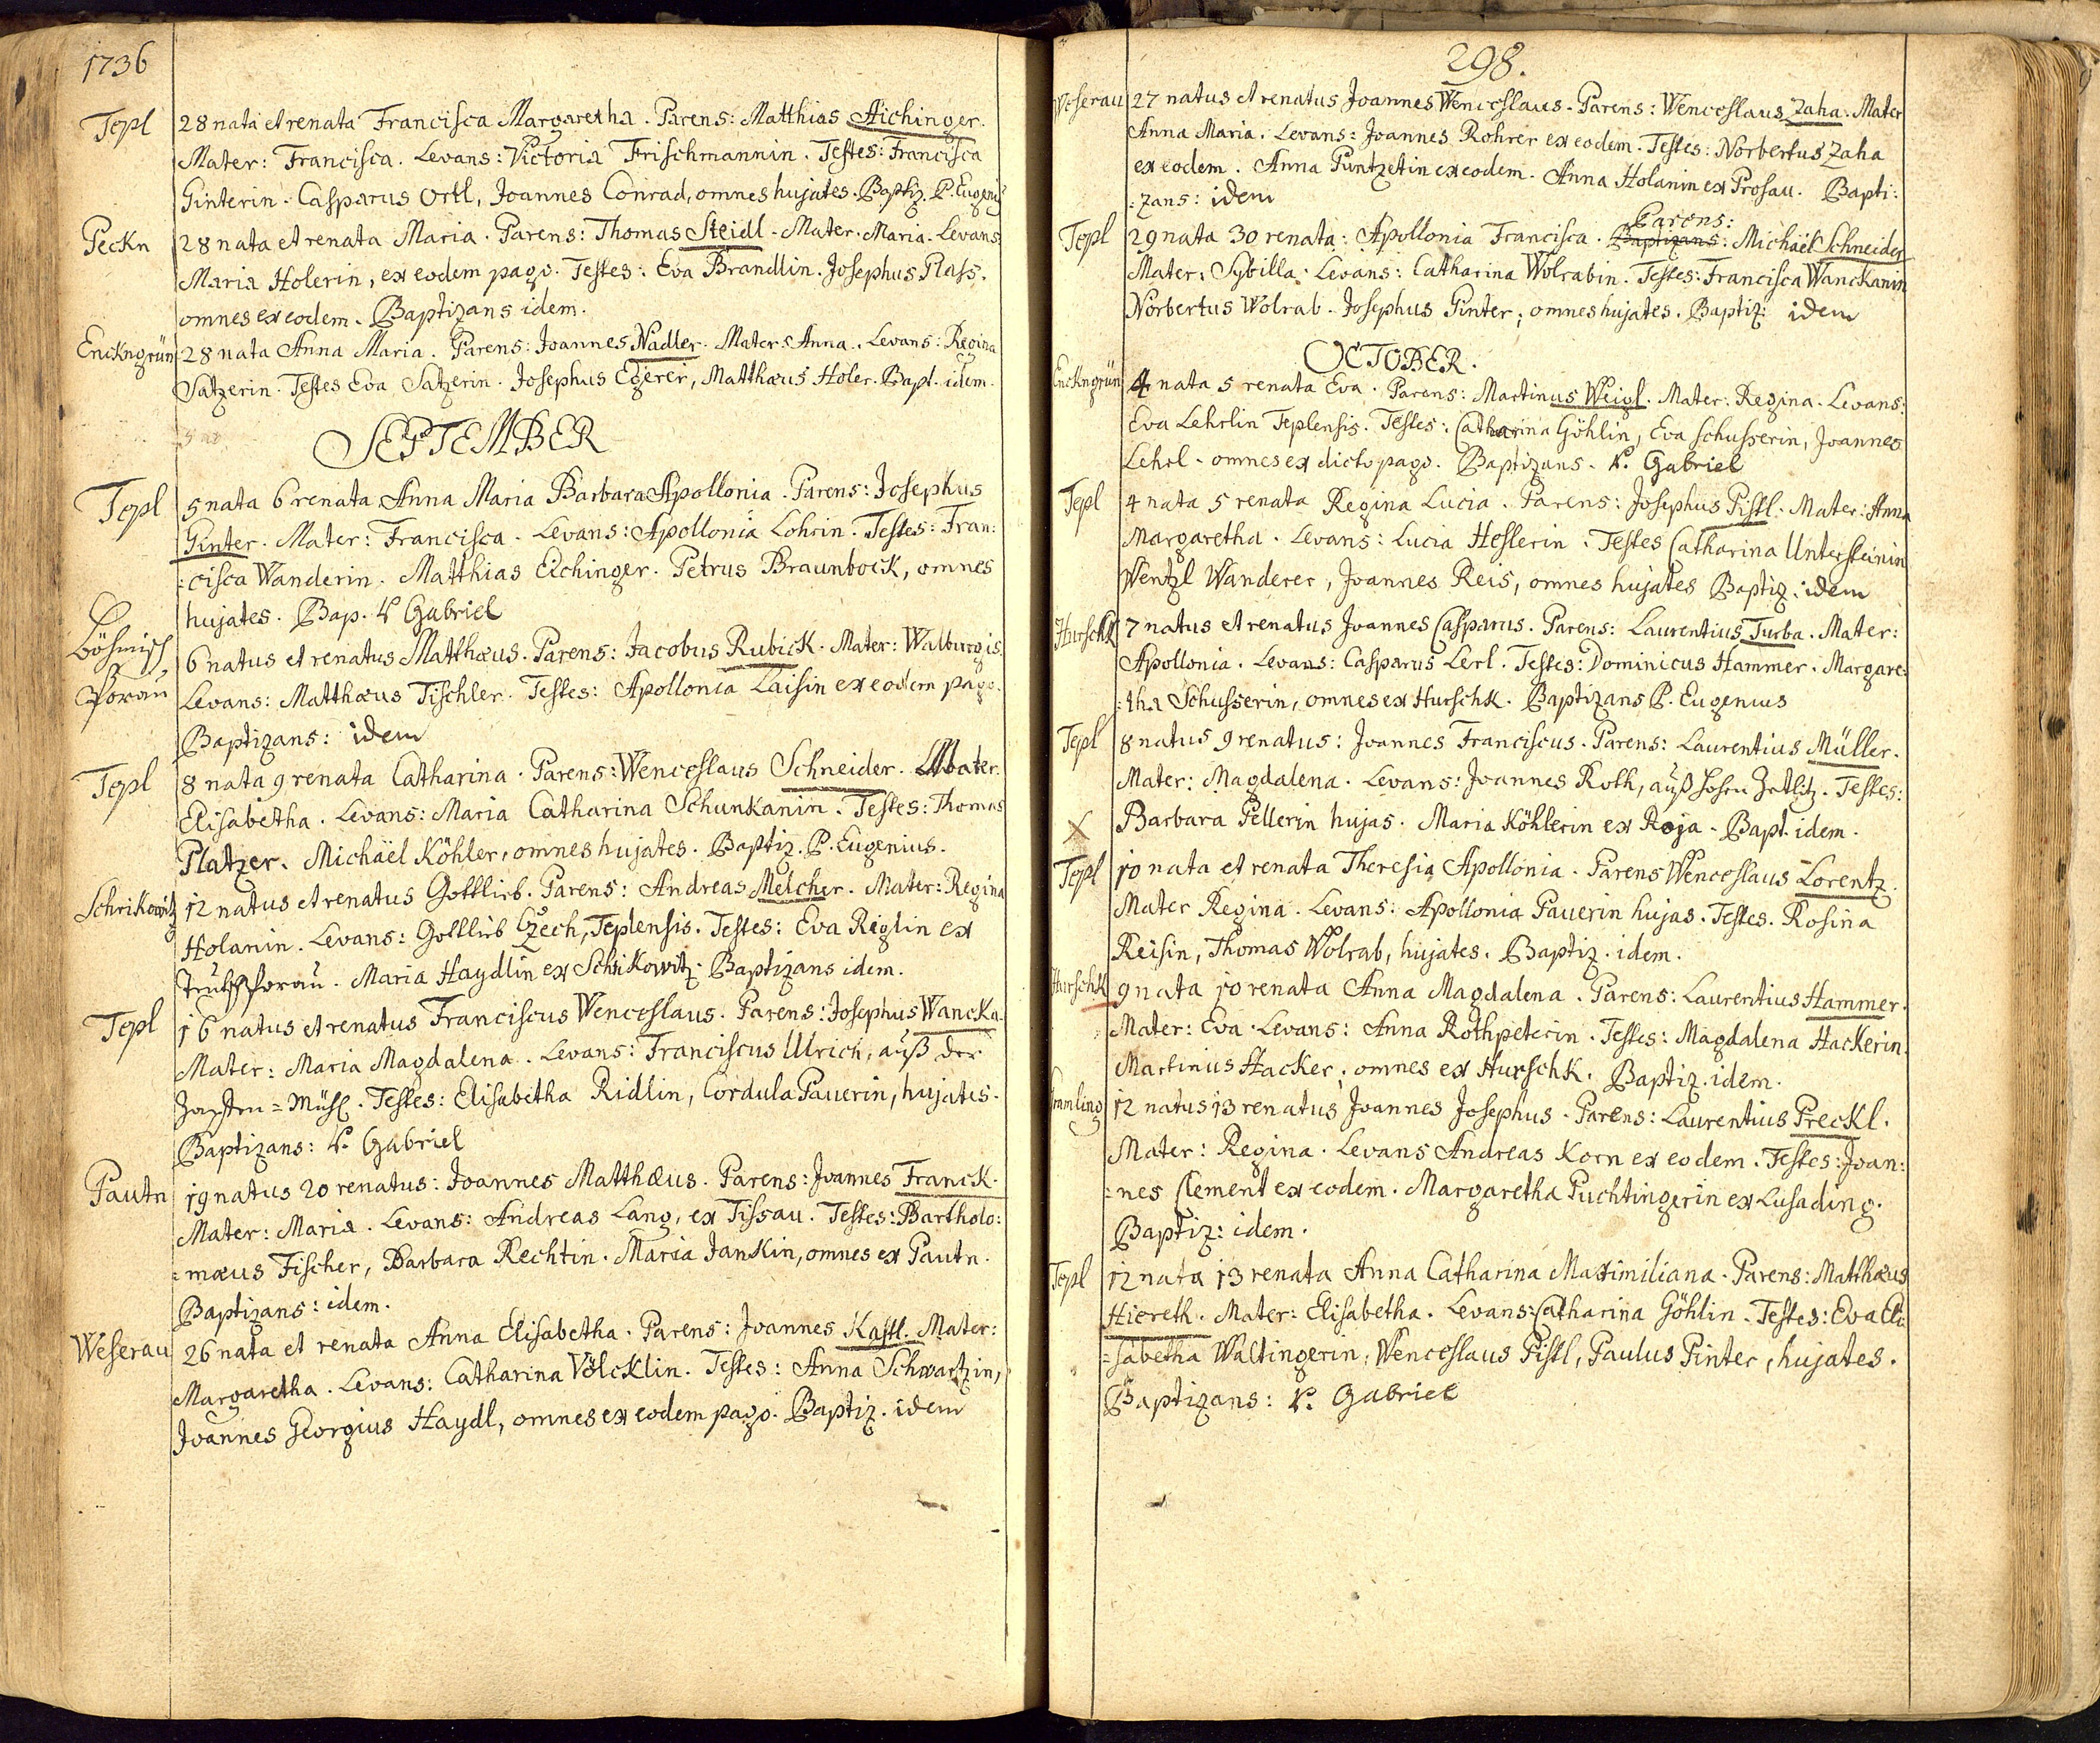 1736
Tepl
28 nata et renata Francisca Margaretha. Parens: Matthias Aichinger.
Mater: Francisca. Levans: Victoria Frischmannin. Testes: Francisca
Ginterin. Casparus Ortl, Joannes Conrad, omnes hujates. Baptiz. P. Eugeni9
Peckn
28 nata et renata Maria. Parens: Thomas Steidl. Mater. Maria. Levans
Maria Holerin, ex eodem pago. Testes: Eva Brandlin. Josephus Plass.
omnes ex eodem. Baptizans idem.
Enckngrün
28 nata Anna Maria. Parens: Joannes Nadler. Mater: Anna. Levans: Regina
Satzerin. Testes Eva Satzerin. Josephus Egerer, Matthæus Holer. Bapt. idem.
SEPTEMBER
Tepl
5 nata 6 renata Anna Maria Barbara Apollonia. Parens: Josephus
Ginter. Mater: Francisca. Levans: Apollonia Lohrin. Testes: Fran:
:cisca Wanderin. Matthias Eichinger. Petrus Braunbock, omnes
hujates. Bap. P. Gabriel
Böhmisch
Borau
6 natus et renatus Matthæus. Parens: Jacobus Rubick. Mater: Walburgis.
Levans: Matthæus Tischler. Testes: Apollonia Laisin ex eodem pago.
Baptizans: idem
Tepl
8 nata 9 renata Catharina. Parens: Wenceslaus Schneider. Mater.
Elisabetha. Levans: Maria Catharina Schunkanin. Testes: Thomas
Platzer. Michaël Köhler, omnes hujates. Baptiz. P. Eugenius.
Schrikowitz
12 natus et renatus Gottlieb. Parens: Andreas Melcher. Mater: Regina
Holanin. Levans: Gottlieb Czech, Teplensis. Testes: Eva Riglin ex
Teutschborau. Maria Haydlin ex Schrikowitz. Baptizans idem.
Tepl
16 natus et renatus Franciscus Wenceslaus. Parens: Josephus Wancka.
Mater: Maria Magdalena. Levans: Franciscus Ulrich, auß der
=Mühl. Testes: Elisabetha Ridlin, Cordula Pauerin, hujates.
Baptizans: P. Gabriel
Pautn
19 natus 20 renatus: Joannes Matthæus. Parens: Joannes Franck.
Mater: Maria. Levans: Andreas Lang, ex Tissau. Testes: Bartholo:
:mæus Fischer, Barbara Rechtin. Maria Jankin, omnes ex Pautn.
Baptizans: idem.
Weserau
26 nata et renata Anna Elisabetha. Parens: Joannes Kastl. Mater:
Margaretha. Levans: Catharina Völcklin. Testes: Anna Schwartzin,
Joannes Georgius Haydl, omnes ex eodem pago. Baptiz. idem
298.
Weserau
27 natus et renatus Joannes Wenceslaus. Parens: Wenceslaus Zaha. Mater
Anna Maria. Levans: Joannes Rohrer ex eodem. Testes: Norbertus Zaha
ex eodem. Anna Puntzetin ex eodem. Anna Holanin ex Prosau. Bapti:
:zans: idem
Tepl
Parens:
29 nata 30 renata: Apollonia Francisca. Baptizans: Michaël Schneider
Mater: Sybilla. Levans: Catharina Wolrabin. Testes: Francisca Wanckanin
Norbertus Wolrab. Josephus Ginter, omnes hujates. Baptiz: idem
OCTOBER.
Enckngrün
4 nata 5 renata Eva. Parens: Martinus Weigl. Mater: Regina. Levans:
Eva Lehrlin Teplensis. Testes: Catharina Göhlin, Eva Schusserin, Joannes
Lehrl. omnes ex dicto pago. Baptizans. P. Gabriel
Tepl
4 nata 5 renata Regina Lucia. Parens: Josephus Pistl. Mater: Anna
Margaretha. Levans: Lucia Heslerin. Testes Catharina Untersteinin
Wentzl Wanderer, Joannes Reis, omnes hujates Baptiz: idem
Hurschk
7 natus et renatus Joannes Casparus. Parens: Laurentius Turba. Mater:
Apollonia. Levans: Casparus Lerl. Testes: Dominicus Hammer. Margare:
:tha Schusserin, omnes ex Hurschk. Baptizans P. Eugenius
Tepl
8 natus 9 renatus: Joannes Franciscus. Parens: Laurentius Müller.
Mater: Magdalena. Levans: Joannes Roth, auß hohen Zetlitz. Testes:
Barbara Pellerin hujas. Maria Köhlerin ex Roja. Bapt. idem.
X
Tepl
10 nata et renata Theresia Apollonia. Parens Wenceslaus Lorentz.
Mater Regina. Levans: Apollonia Pauerin hujas. Testes. Rosina
Reisin, Thomas Wolrab, hujates. Baptiz. idem.
Hurschk
9 nata 10 renata Anna Magdalena. Parens: Laurentius Hammer.
Mater: Eva. Levans: Anna Rothpeterin. Testes: Magdalena Hackerin.
Martinus Hacker; omnes ex Hurschk. Baptiz. idem.
Gramling
12 natus 13 renatus Joannes Josephus. Parens: Laurentius Preckl.
Mater: Regina. Levans Andreas Korn ex eodem. Testes: Joan:
:nes Clement ex eodem. Margaretha Puchtingerin ex Lusading.
Baptiz: idem.
Tepl
12 nata 13 renata Anna Catharina Maximiliana. Parens: Matthæus
Hiereth. Mater: Elisabetha. Levans: Catharina Göhlin. Testes: Eva Eli:
:sabetha Waltingerin, Wenceslaus Pistl, Paulus Pinter, hujates.
Baptizans: P. Gabriel